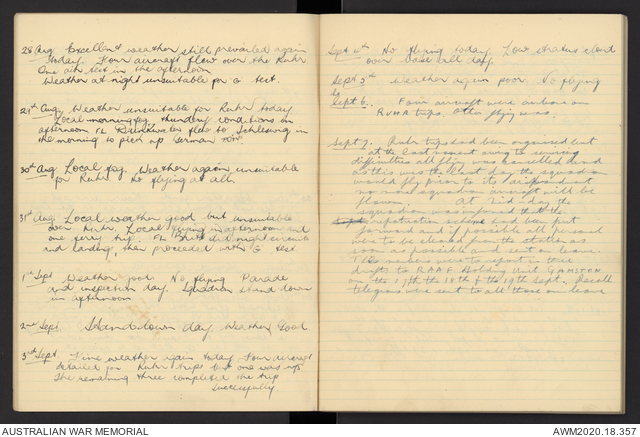 28 Aug Excellent weather still prevailed again
today. Four aircraft flew over the Ruhr
One air test in the afternoon
Weather at night unsuitable for G test.
29th Aug, Weather unsuitable for Ruhr today
Local morning fog thundery conditions in
afternoon FL flew to Schleswig in
the morning to pick up German
30th Aug Local fog. Weather again unsuitable
for Ruhr no flying at all.
31st Aug Local weather good but unsuitable
over Ruhr. Local flying in afternoon and
one ferry trip. FL did night circuits
and landing, then proceeded with G test
1st Sept Weather good No flying Parade
and inspection day. Squadron stand down
in afternoon
2nd Sept Standdown day Weather Good.
3rd Sept. Fine weather again today Four aircraft
detailed for Ruhr trips but one was u/s
The remaining three completed the trip
successfully
Sept 4th No flying today. Low stratus cloud
over base all day.
Sept 5th Weather again poor. No flying
Sept 6. Four aircraft were airborne on
RUHR trips, other flying
Sept 7. Ruhr trips had been organised but
at the last moment owing to
difficulties all flying was cancelled and
as this was the last day the squadron
would fly prior to its
no more squadron aircraft will be
flown. At mid-day the
squadron was informed that the
repatriation had been put
forward and if possible all personnel
were to be cleared from the station as
soon as possible and sent on leave.
The members were to report in three
drafts to RAAF Holding Unit GAMSTON
on the 17th the 18th & the 19th Sept. Recall
telegrams were sent to all those on leave
AUSTRALIAN WAR MEMORIAL
AWM2020.18.357